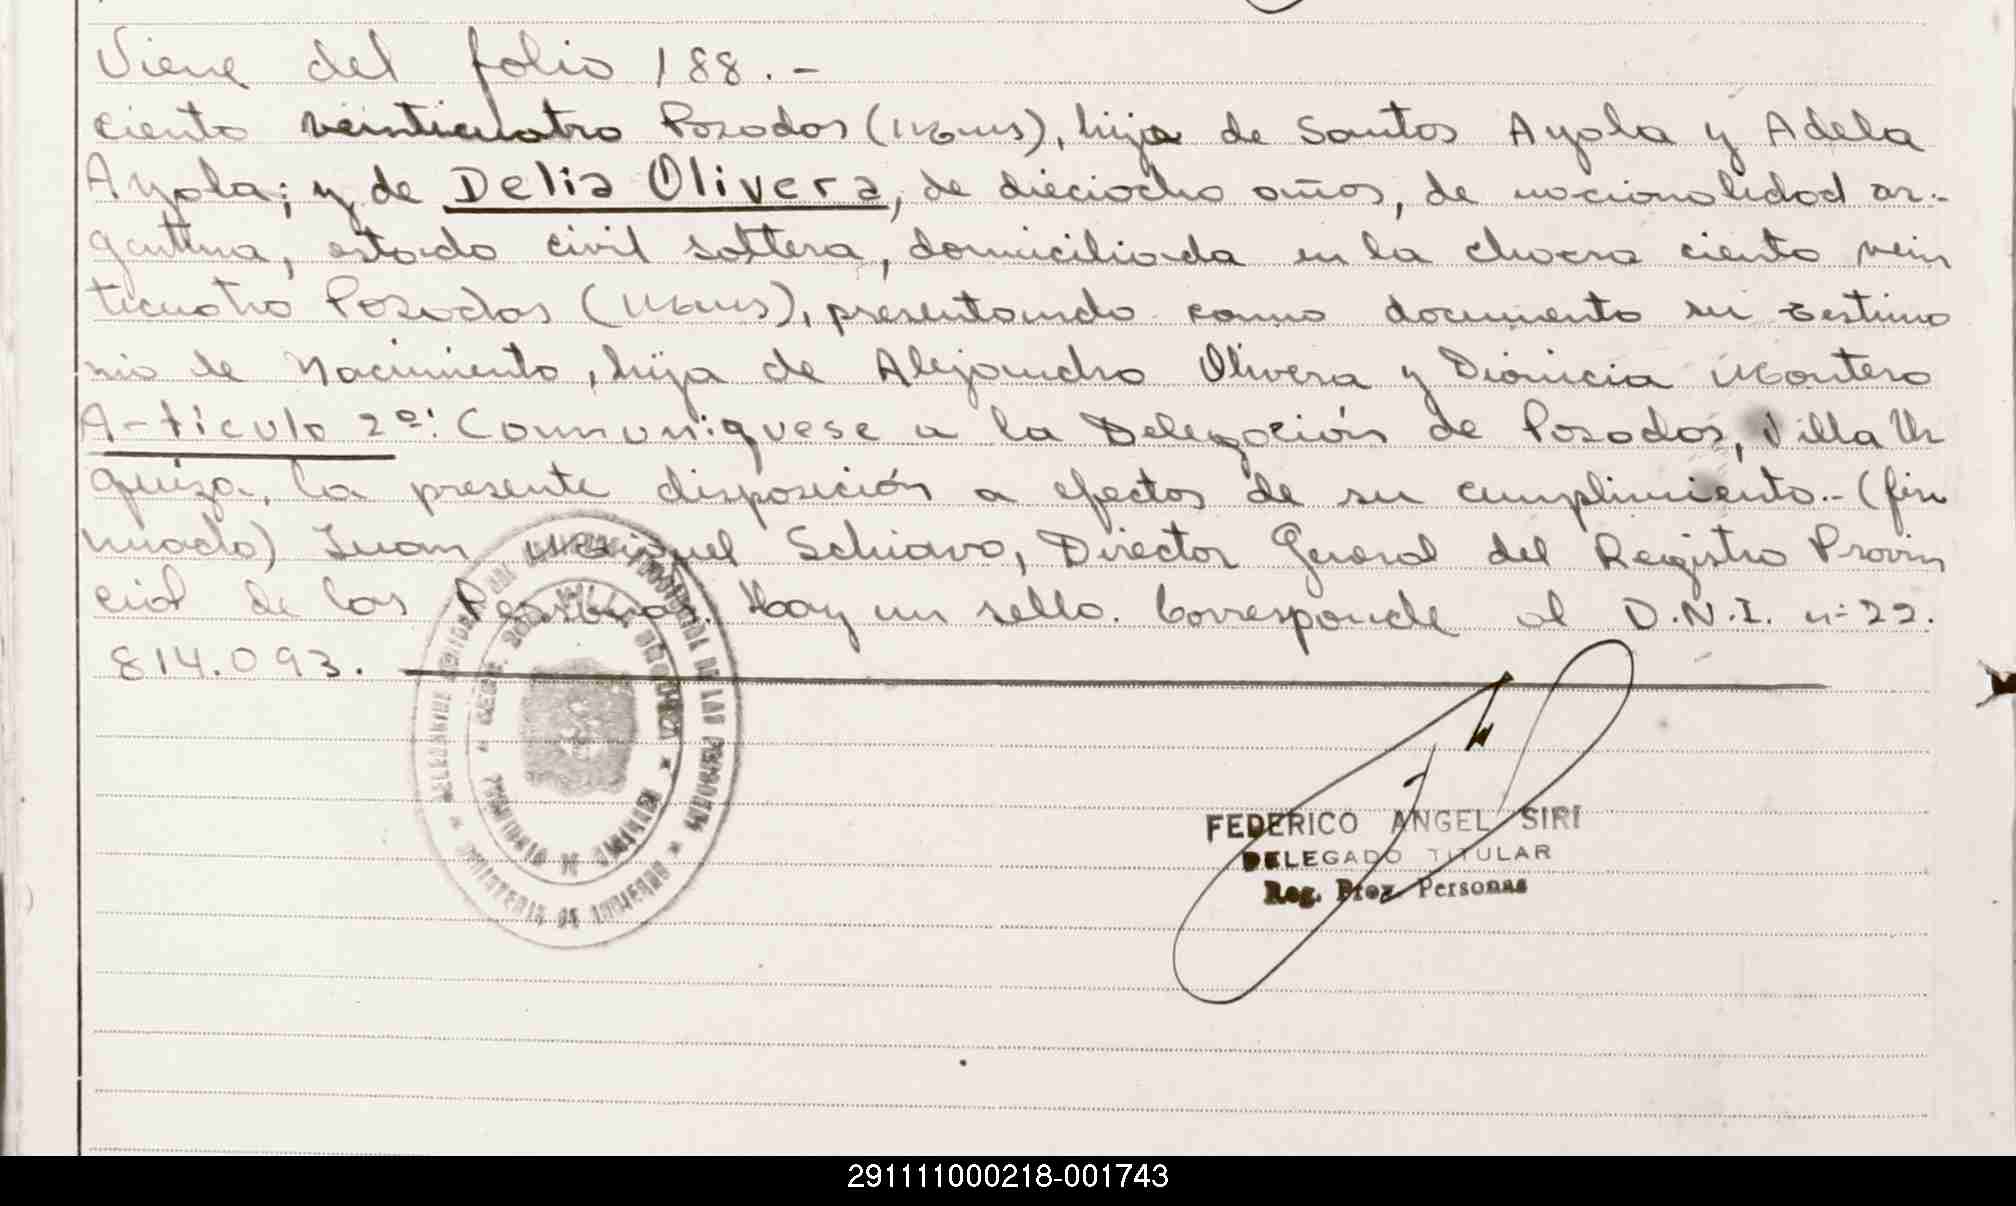 Viene del folio 188.-
ciento veinticuatro Posadas (Mnes), hija de Santos Ayala y Adela
Ayala; y de Delia Olivera, de dieciocho años, de nacionalidad ar-
gentina, estado civil soltera, domiciliada en la chacra ciento vein
ticuatro Posadas (Mnes), presentando como documento su testimo
nio de Nacimiento, hija de Alejandro Olivera y Dionicia Montero
Artículo 2º: Comuníquese a la Delegación de Posadas, Villa Ur
quiza, la presente disposición a efectos de su cumplimiento.- (fir
mado) Juan Manuel Schiavo, Director General del Registro Provin
cial de las Personas. Hay un sello. Corresponde al D.N.I. nº 22.
814.093.
REGISTRO PROVINCIAL DE LAS PERSONAS
MINISTERIO DE GOBIERNO
FEDERICO ANGEL SIRI
DELEGADO TITULAR
Reg. Prov. Personas
291111000218-001743